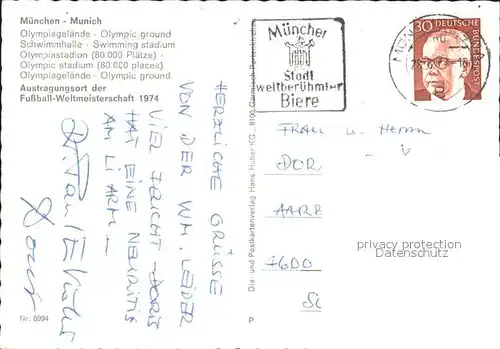 München - Munich
Olympiagelände - Olympic ground
Schwimmhalle - Swimming stadium
Olympiastadion (80 000 Plätze) -
Olympic stadium (80.000 places)
Olympiagelände - Olympic ground
Austragungsort der
Fußball-Weltmeisterschaft 1974
HERZLICHE GRÜSSE
VON DER WM. LEIDER
VIEL FEICHT
HAT EINE NEURITIS
AM LI ARM
Nr. 8994
Dia- und Postkartenverlag Hans Huber KG. 8100 Garmisch-Partenkirchen
P
München
Stadt
weltberühmter
Biere
30 DEUTSCHE
BUNDESPOST
FRAU u. HERRN
DOR
AARB
7600
privacy protection
Datenschutz